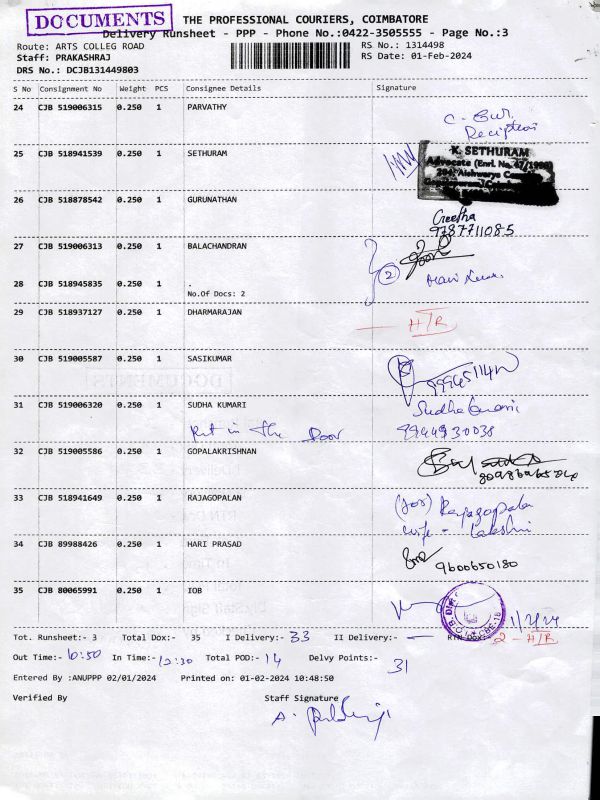 DOCUMENTS
THE PROFESSIONAL COURIERS, COIMBATORE
Delivery Runsheet - PPP - Phone No.:0422-3505555 - Page No.:3
Route: ARTS COLLEG ROAD
RS No.: 1314498
Staff: PRAKASHRAJ
RS Date: 01-Feb-2024
DRS No.: DCJB131449803
S No Consignment No Weight PCS Consignee Details Signature
24 CJB 519006315 0.250 1 PARVATHY
25 CJB 518941539 0.250 1 SETHURAM
K. SETHURAM
Advocate (Enrl. No. 47/1998)
26 CJB 518878542 0.250 1 GURUNATHAN
Geetha
9787711085
27 CJB 519006313 0.250 1 BALACHANDRAN
28 CJB 518945835 0.250 1 .
No.Of Docs: 2
2
29 CJB 518937127 0.250 1 DHARMARAJAN
H/R
30 CJB 519005587 0.250 1 SASIKUMAR
31 CJB 519006320 0.250 1 SUDHA KUMARI
Put in The Door
9944930038
32 CJB 519005586 0.250 1 GOPALAKRISHNAN
33 CJB 518941649 0.250 1 RAJAGOPALAN
(for) Rajagopala
wife - Lakshmi
34 CJB 89988426 0.250 1 HARI PRASAD
9600650180
35 CJB 80065991 0.250 1 IOB
1/2/24
Tot. Runsheet:- 3 Total Dox:- 35 I Delivery:- 33 II Delivery:- — RTN Dox:- 2 - H/R
Out Time:- 10:50 In Time:- 12:30 Total POD:- 14 Delvy Points:- 31
Entered By :ANUPPP 02/01/2024 Printed on: 01-02-2024 10:48:50
Verified By Staff Signature